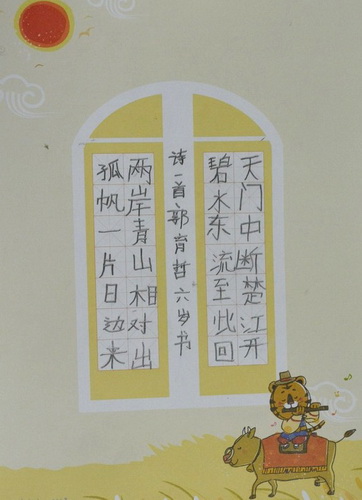 天门中断楚江开
碧水东流至此回
两岸青山相对出
孤帆一片日边来
诗一首郭育哲六岁书